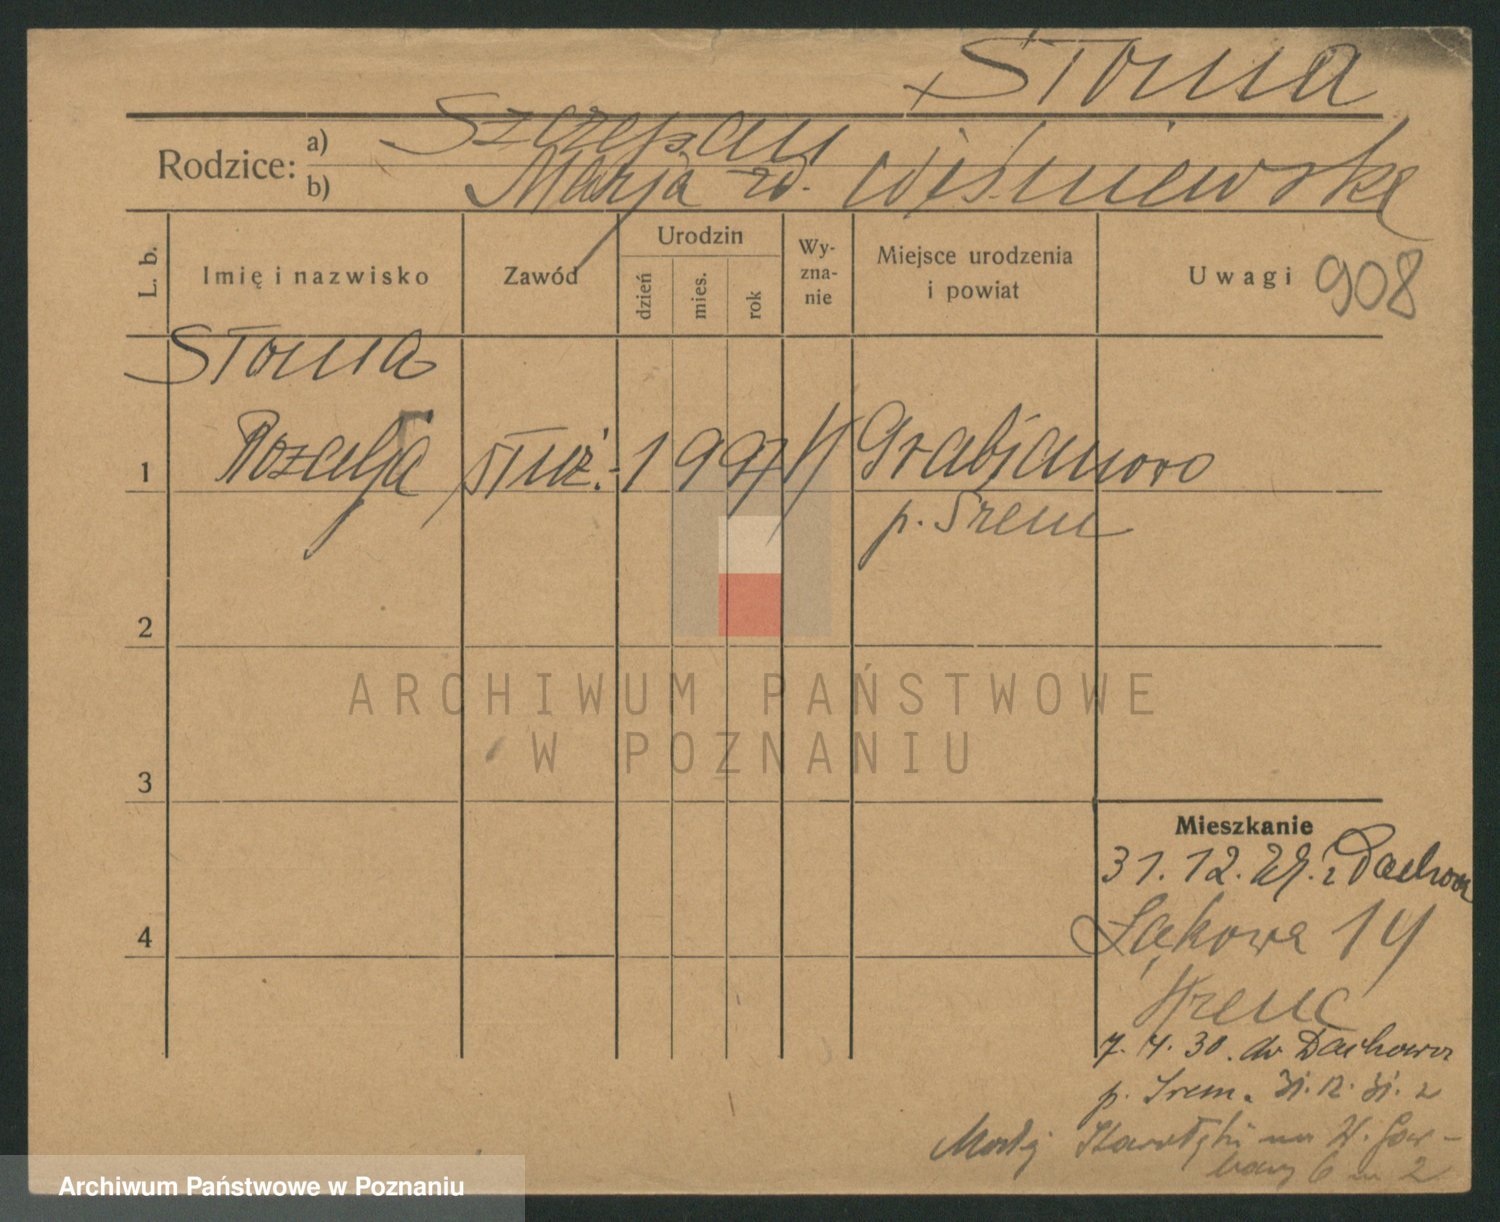 Słoma
Rodzice: a) Szczepan
b) Marja rd. Wiśniewska
L. b. Imię i nazwisko Zawód Urodzin dzień mies. rok Wy-zna-nie Miejsce urodzenia i powiat Uwagi 908
Słoma
1 Rozalja służ. 1 9 9 K Grabjanowo
p. Śrem
2
3
4
ARCHIWUM PAŃSTWOWE
W POZNANIU
Mieszkanie
31. 12. 29. z Dachowa
Łąkowa 14
7. 4. 30. do Dachowa
p. Śrem. 31. 12. 31. z
na W. Gar-
bary 6 m 2
Archiwum Państwowe w Poznaniu